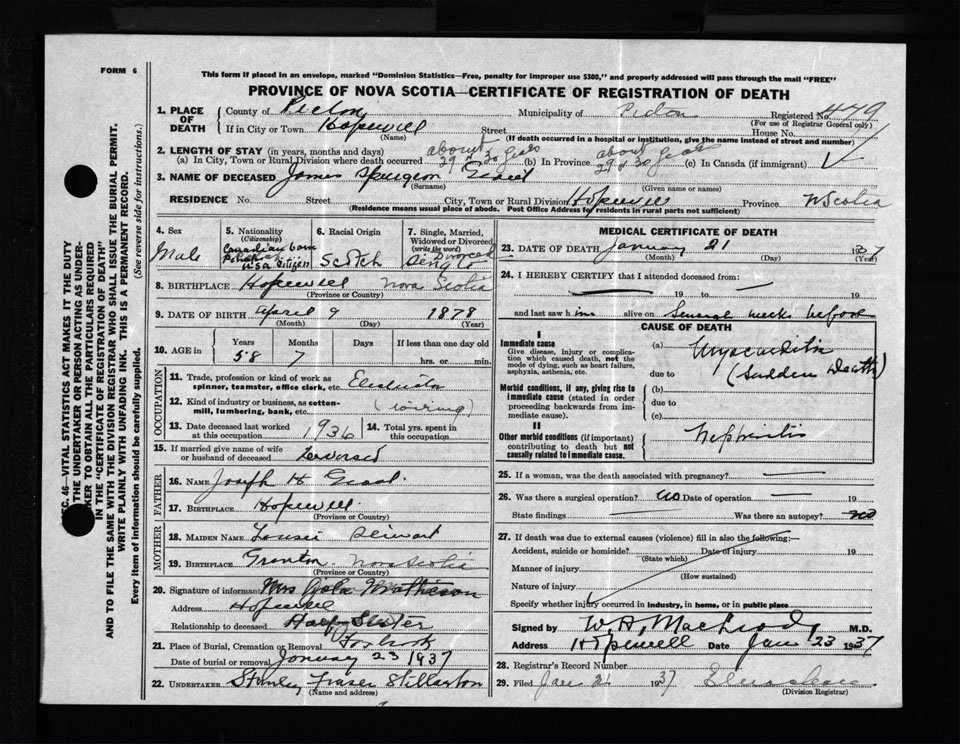 FORM 6
This form if placed in an envelope, marked "Dominion Statistics—Free, penalty for improper use $300," and properly addressed will pass through the mail "FREE"
PROVINCE OF NOVA SCOTIA—CERTIFICATE OF REGISTRATION OF DEATH
1. PLACE OF DEATH
County of Pictou Municipality of Pictou Registered No. 479
(For use of Registrar General only)
If in City or Town Hopewell Street House No.
(Name) (If death occurred in a hospital or institution, give the name instead of street and number)
2. LENGTH OF STAY (in years, months and days) about about
(a) In City, Town or Rural Division where death occurred 29 & 30 (b) In Province 29 & 30 (c) In Canada (if immigrant)
3. NAME OF DECEASED James Spurgeon Grant
(Surname) (Given name or names)
RESIDENCE No. Street City, Town or Rural Division Hopewell Province N Scotia
(Residence means usual place of abode. Post Office Address for residents in rural parts not sufficient)
4. Sex
Male
5. Nationality
(Citizenship)
Canadian born
USA citizen
6. Racial Origin
Scotch
7. Single, Married, Widowed or Divorced
(write the word)
Divorced
Single
8. BIRTHPLACE Hopewell Nova Scotia
(Province or Country)
9. DATE OF BIRTH April 9 1878
(Month) (Day) (Year)
10. AGE in
Years Months Days If less than one day old
58 7 hrs. or min.
OCCUPATION
11. Trade, profession or kind of work as spinner, teamster, office clerk, etc.
12. Kind of industry or business, as cotton-mill, lumbering, bank, etc. (wiring)
13. Date deceased last worked at this occupation 1936 14. Total yrs. spent in this occupation
15. If married give name of wife or husband of deceased
FATHER
16. NAME Joseph H Grant
17. BIRTHPLACE Hopewell
(Province or Country)
MOTHER
18. MAIDEN NAME
19. BIRTHPLACE Granton Nova Scotia
(Province or Country)
20. Signature of informant Mrs Matheson
Address Hopewell
Relationship to deceased Half Sister
21. Place of Burial, Cremation or Removal
Date of burial or removal January 23 1937
22. UNDERTAKER Stanley Fraser Stellarton
(Name and address)
MEDICAL CERTIFICATE OF DEATH
23. DATE OF DEATH January 21 1937
(Month) (Day) (Year)
24. I HEREBY CERTIFY that I attended deceased from:
— 19 to — 19
and last saw him alive on Several weeks before
CAUSE OF DEATH
I
Immediate cause
Give disease, injury or complication which caused death, not the mode of dying, such as heart failure, asphyxia, asthenia, etc.
(a) Myocarditis
due to (Sudden Death)
Morbid conditions, if any, giving rise to immediate cause (stated in order proceeding backwards from immediate cause).
(b)
due to
(c)
II
Other morbid conditions (if important) contributing to death but not causally related to immediate cause.
Nephritis
25. If a woman, was the death associated with pregnancy? —
26. Was there a surgical operation? no Date of operation — 19
State findings — Was there an autopsy? no
27. If death was due to external causes (violence) fill in also the following:—
Accident, suicide or homicide? Date of injury 19
(State which)
Manner of injury
(How sustained)
Nature of injury
Specify whether injury occurred in industry, in home, or in public place
Signed by W. A. MacLeod M.D.
Address Hopewell Date Jan 23 1937
28. Registrar's Record Number
29. Filed Jan 21 1937
(Division Registrar)
SEC. 46—VITAL STATISTICS ACT MAKES IT THE DUTY
THE UNDERTAKER OR PERSON ACTING AS UNDER-
TAKER TO OBTAIN ALL THE PARTICULARS REQUIRED
IN THE "CERTIFICATE OF REGISTRATION OF DEATH"
AND TO FILE THE SAME WITH THE DIVISION REGISTRAR WHO SHALL ISSUE THE BURIAL PERMIT.
WRITE PLAINLY WITH UNFADING INK. THIS IS A PERMANENT RECORD.
Every item of information should be carefully supplied. (See reverse side for instructions.)